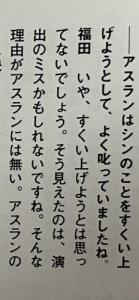 ――アスランはシンのことをすくい上
げようとして、よく叱っていましたね。
福田　いや、すくい上げようとは思っ
てないでしょう。そう見えたのは、演
出のミスかもしれないですね。そんな
理由がアスランには無い。アスランの